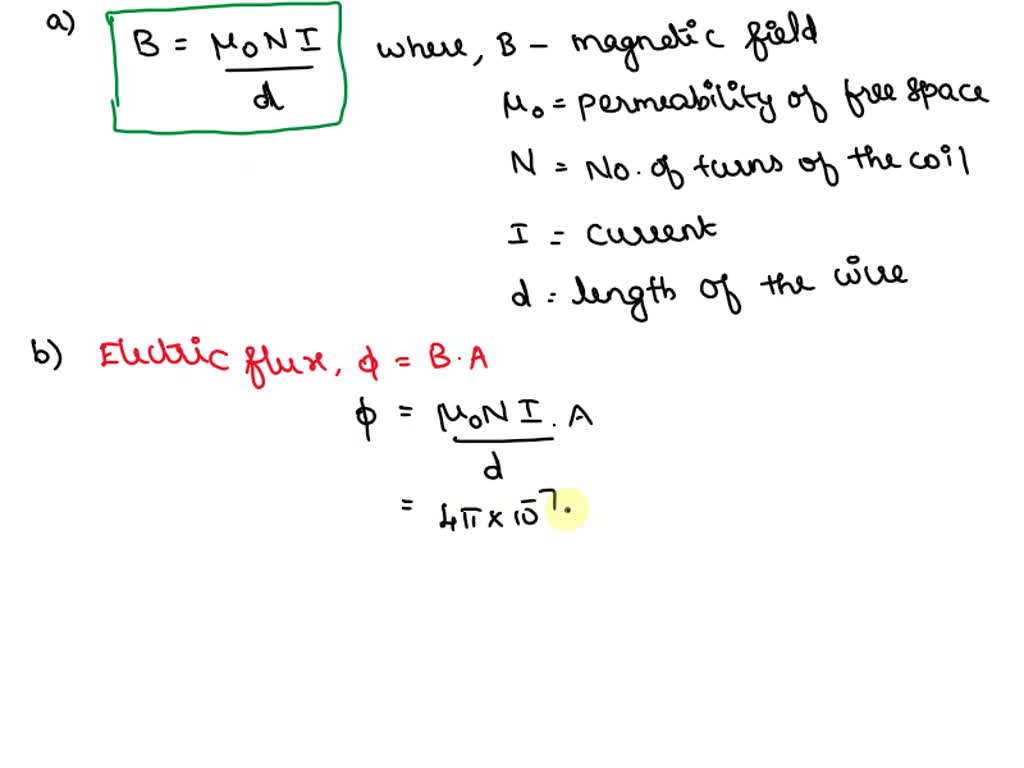 a) B = μ₀NI / d where, B - magnetic field
μ₀ = permeability of free space
N = No. of turns of the coil
I = current
d = length of the wire
b) Electric flux, ϕ = B.A
ϕ = μ₀NI / d . A
= 4π × 10⁻⁷.